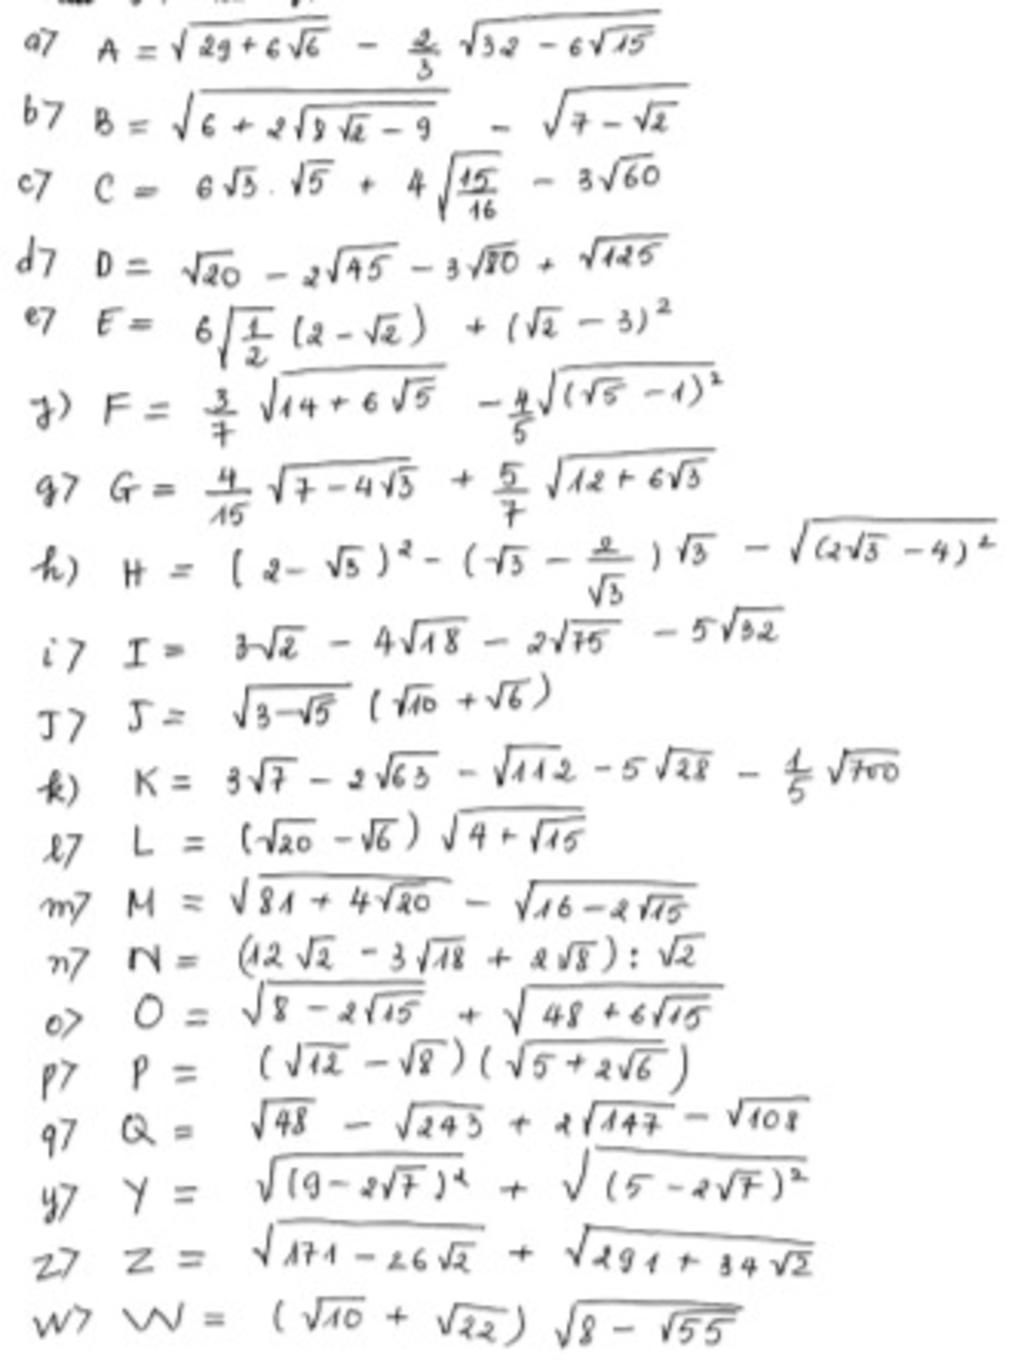 a) A = √(29 + 6√6) - 2/3 √(32 - 6√15)
b) B = √(6 + 2√(8√2 - 9)) - √(7 - √2)
c) C = 6√3 . √5 + 4√(15/16) - 3√60
d) D = √20 - 2√45 - 3√80 + √125
e) E = 6√(1/2) (2 - √2) + (√2 - 3)²
f) F = 3/7 √(14 + 6√5) - 4/5 √((√5 - 1)²)
g) G = 4/15 √(7 - 4√3) + 5/7 √(12 + 6√3)
h) H = (2 - √3)² - (√3 - 2/√3) √3 - √((2√3 - 4)²)
i) I = 3√2 - 4√18 - 2√75 - 5√32
J) J = √(3 - √5) (√10 + √6)
k) K = 3√7 - 2√63 - √112 - 5√28 - 1/5 √700
l) L = (√20 - √6) √(4 + √15)
m) M = √(81 + 4√20) - √(16 - 2√15)
n) N = (12√2 - 3√18 + 2√8) : √2
o) O = √(8 - 2√15) + √(48 + 6√15)
p) P = (√12 - √8) (√(5 + 2√6))
q) Q = √48 - √243 + 2√147 - √108
y) Y = √((9 - 2√7)²) + √((5 - 2√7)²)
z) Z = √(171 - 26√2) + √(291 + 34√2)
w) W = (√10 + √22) √(8 - √55)